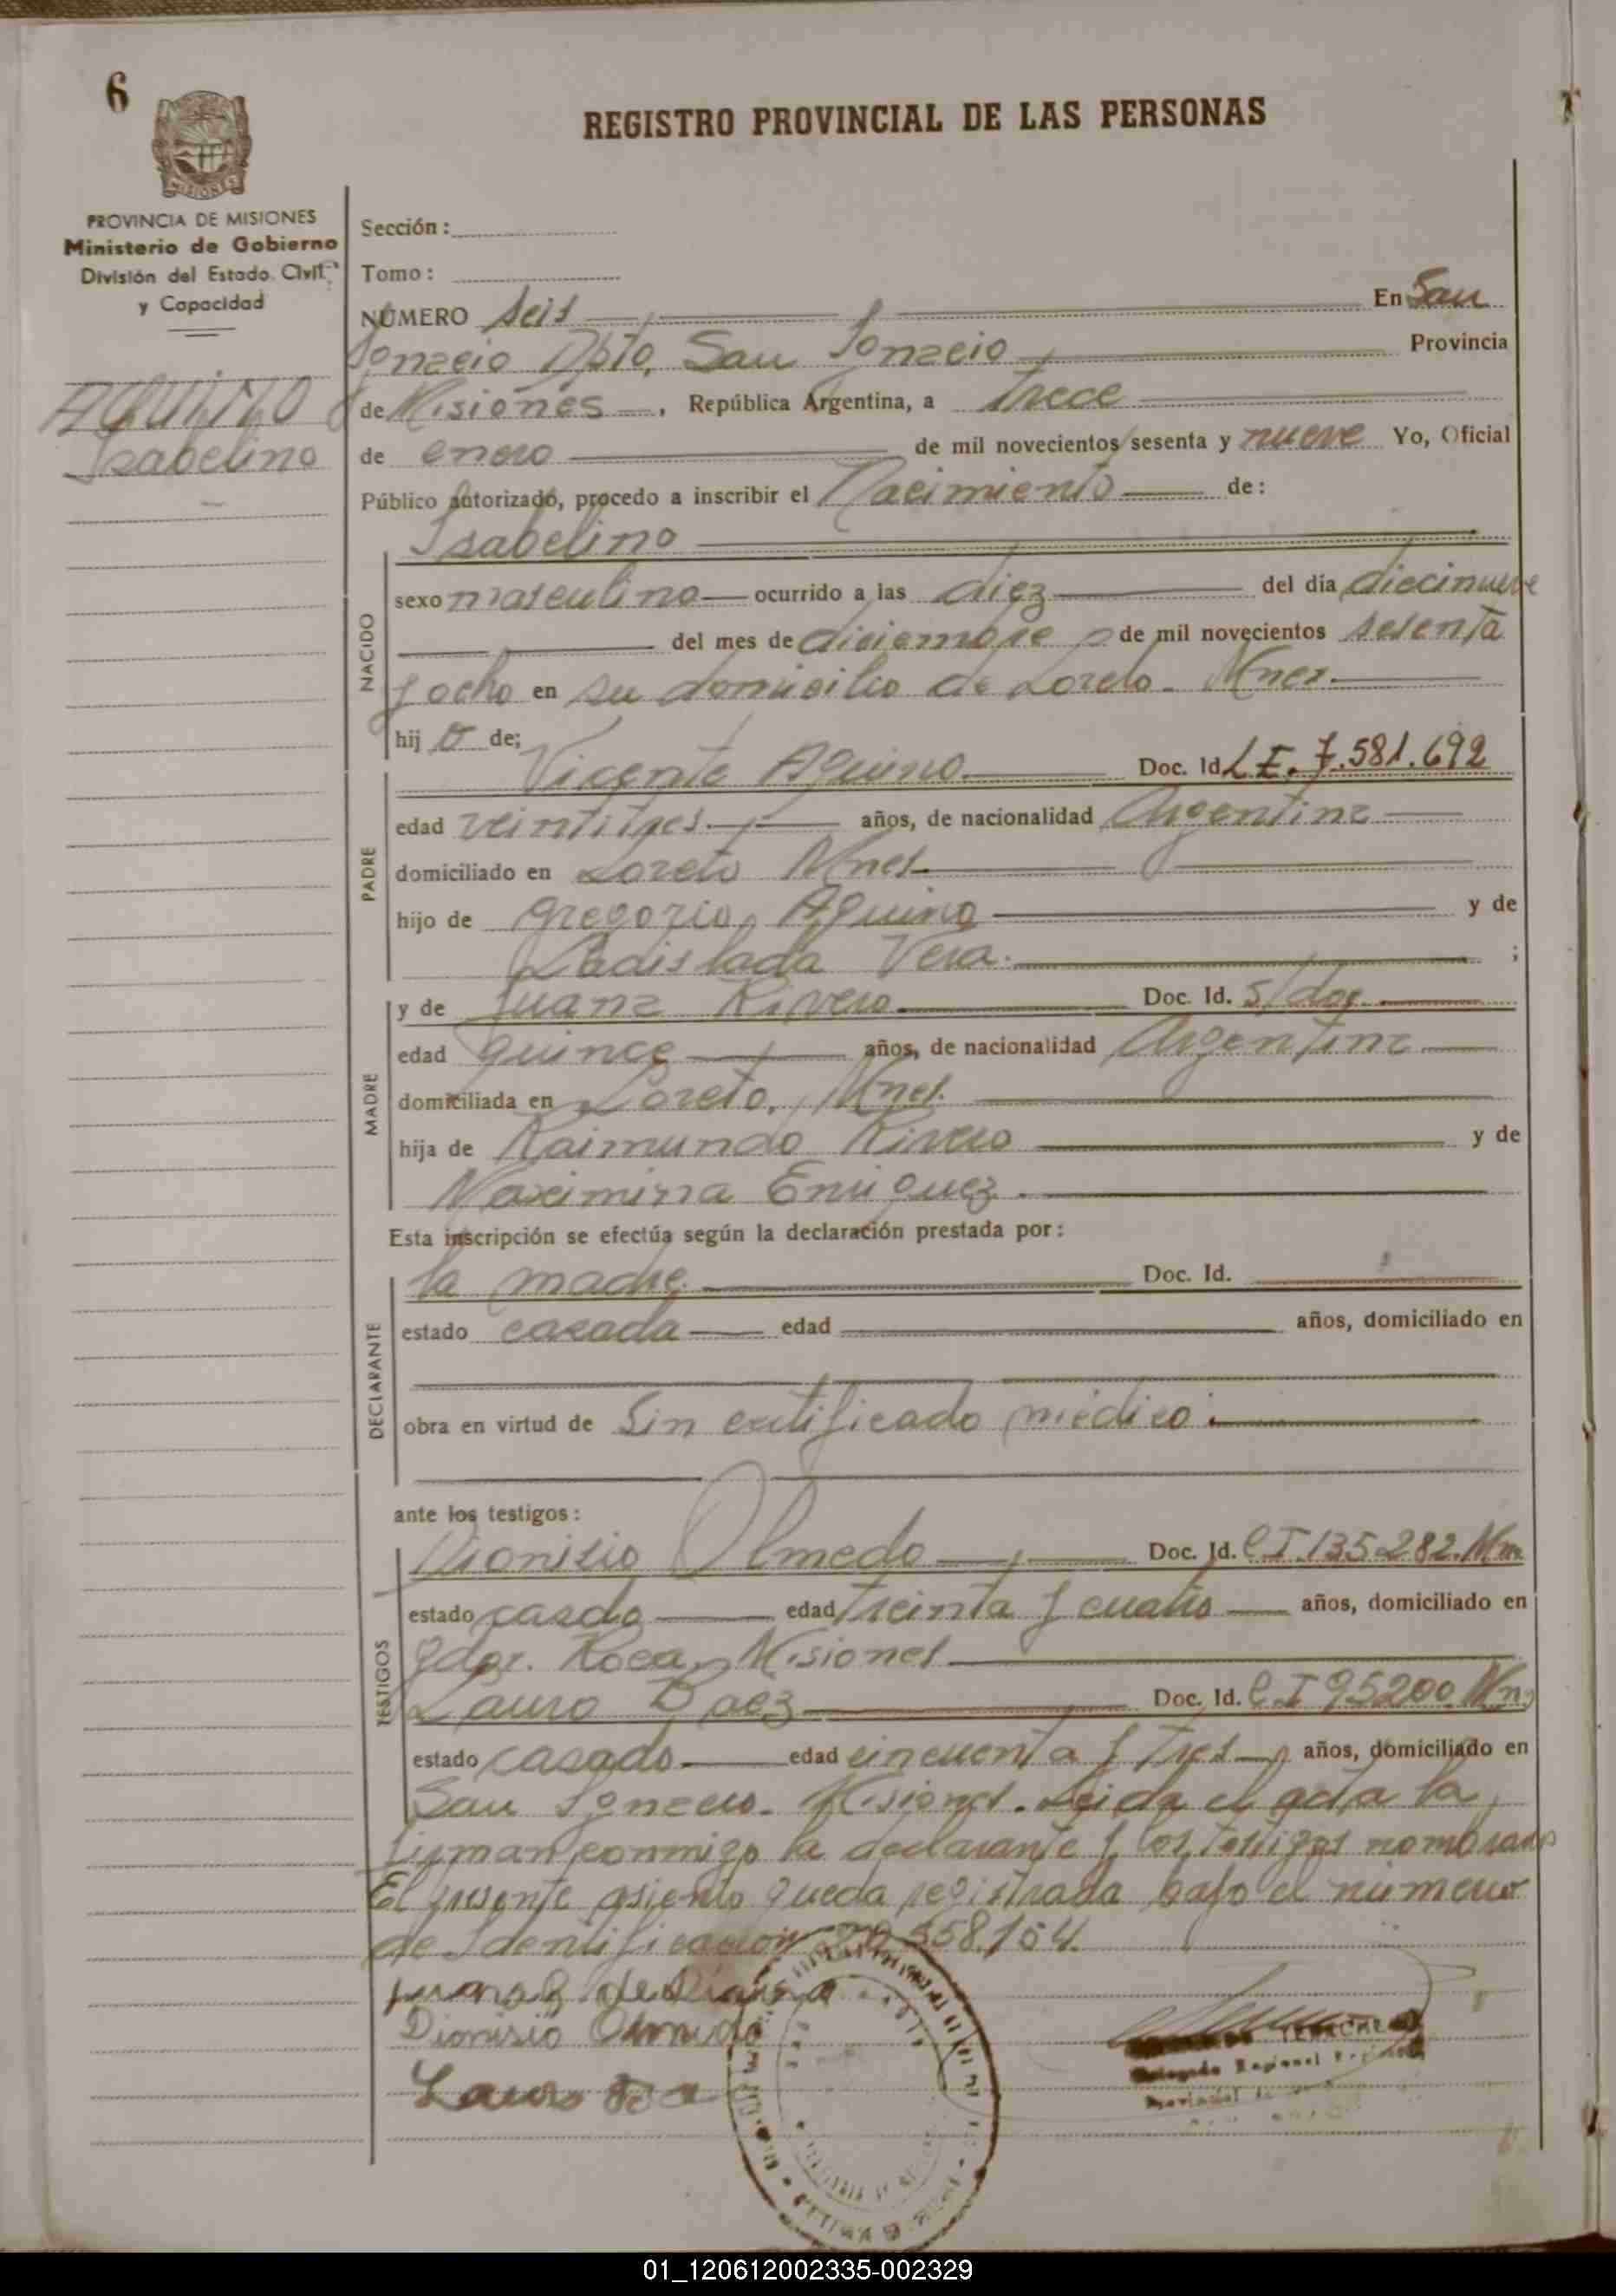 6
REGISTRO PROVINCIAL DE LAS PERSONAS
MISIONES
PROVINCIA DE MISIONES
Ministerio de Gobierno
División del Estado Civil
y Capacidad
AQUINO
Isabelino
Sección:
Tomo:
NÚMERO Seis En San
Ignacio Dpto. San Ignacio Provincia
de Misiones, República Argentina, a trece
de enero de mil novecientos sesenta y nueve Yo, Oficial
Público autorizado, procedo a inscribir el Nacimiento de:
Isabelino
NACIDO
sexo masculino ocurrido a las diez del día diecinueve
del mes de diciembre de mil novecientos sesenta
y ocho en su domicilio de Loreto. Mnes.
hij o de;
Vicente Aquino Doc. Id. L.E. 7.581.692
PADRE
edad veintitres años, de nacionalidad Argentina
domiciliado en Loreto Mnes.
hijo de Gregorio Aquino y de
Ladislada Vera. ;
MADRE
y de Juana Rivero Doc. Id. s/doc.
edad quince años, de nacionalidad Argentina
domiciliada en Loreto, Mnes.
hija de Raimundo Rivero y de
Maximina Enriquez.
Esta inscripción se efectúa según la declaración prestada por:
DECLARANTE
la madre. Doc. Id.
estado casada edad años, domiciliado en
obra en virtud de Sin certificado médico.
ante los testigos:
TESTIGOS
Dionisio Olmedo Doc. Id. C.I. 135.282. Mnes
estado casado edad treinta y cuatro años, domiciliado en
Gdor. Roca, Misiones
Lauro Baez Doc. Id. C.I 95200 Mns
estado casado edad cincuenta y tres años, domiciliado en
San Ignacio. Misiones. Leida el acta la
firman conmigo la declarante y los testigos nombrados
El presente asiento queda registrada bajo el número
de Identificación 20.558.164.
Juana R de
Dionisio Olmedo
Lauro
Delegado Regional
Provincial de
01_120612002335-002329